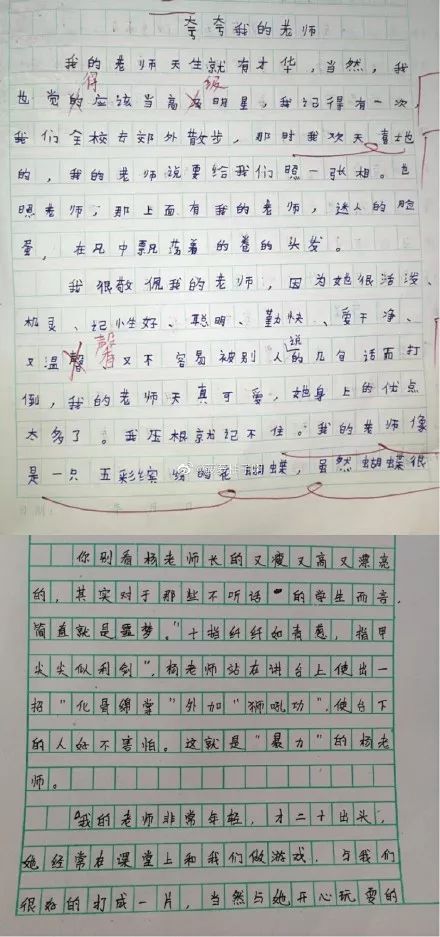 夸夸我的老师
我的老师天生就有才华，当然，我
得 级
也觉的应该当高及明星，我记得有一次，
我们全校去郊外散步，那时我欢天喜地
的，我的老师说要给我们照一张相。也
照老师，那上面有我的老师，迷人的脸
蛋，在风中飘荡着的卷的头发。
我很敬佩我的老师，因为她很活泼、
机灵、记性好、聪明、勤快、爱干净、
馨 说
又温又不容易被别人的几句话而打
倒，我的老师天真可爱，她身上的优点
太多了。我压根就记不住。我的老师像
是一只五彩缤纷的花蝴蝶，虽然蝴蝶很
日期： 年 月 日
你别看杨老师长的又瘦又高又漂亮
的，其实对于那些不听话的学生而言，
简直就是噩梦。“十指纤纤如青葱，指甲
尖尖似利剑”，杨老师站在讲台上使出一
招“化骨绵掌”外加“狮吼功”，使台下
的人好不害怕。这就是“暴力”的杨老
师。
我的老师非常年轻，才二十出头，
她经常在课堂上和我们做游戏，与我们
很好的打成一片，当然与她开心玩耍的